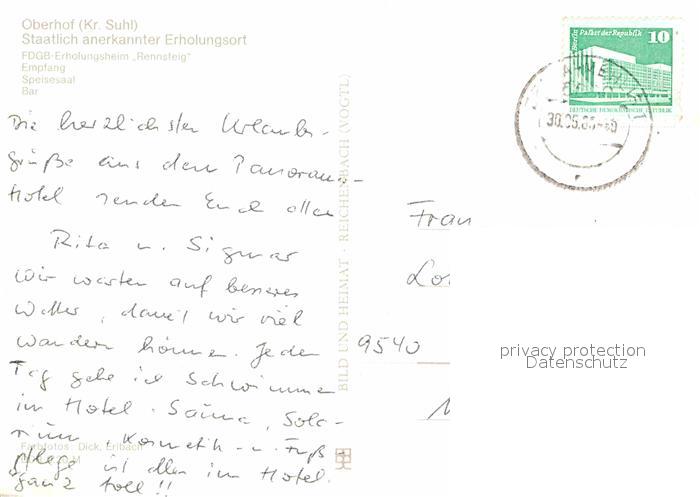 Oberhof (Kr. Suhl)
Staatlich anerkannter Erholungsort
FDGB-Erholungsheim „Rennsteig"
Empfang
Speisesaal
Bar
Die herzlichsten Urlaubs-
grüße aus dem Panorama-
Hotel senden Euch allen
Rita u. Sigmar
Wir warten auf besseres
Wetter, damit wir viel
wandern können. Jeden
Tag gehe ich Schwimmen
im Hotel. Sauna, Sola-
rium, Kosmetik- u. Fuß-
pflege ist alles im Hotel.
Ganz toll!!
Farbfotos: Dick, Erlbach
BILD UND HEIMAT · REICHENBACH (VOGTL)
Berlin Palast der Republik
10
DEUTSCHE DEMOKRATISCHE REPUBLIK
30.05.
Frau
9540
privacy protection
Datenschutz